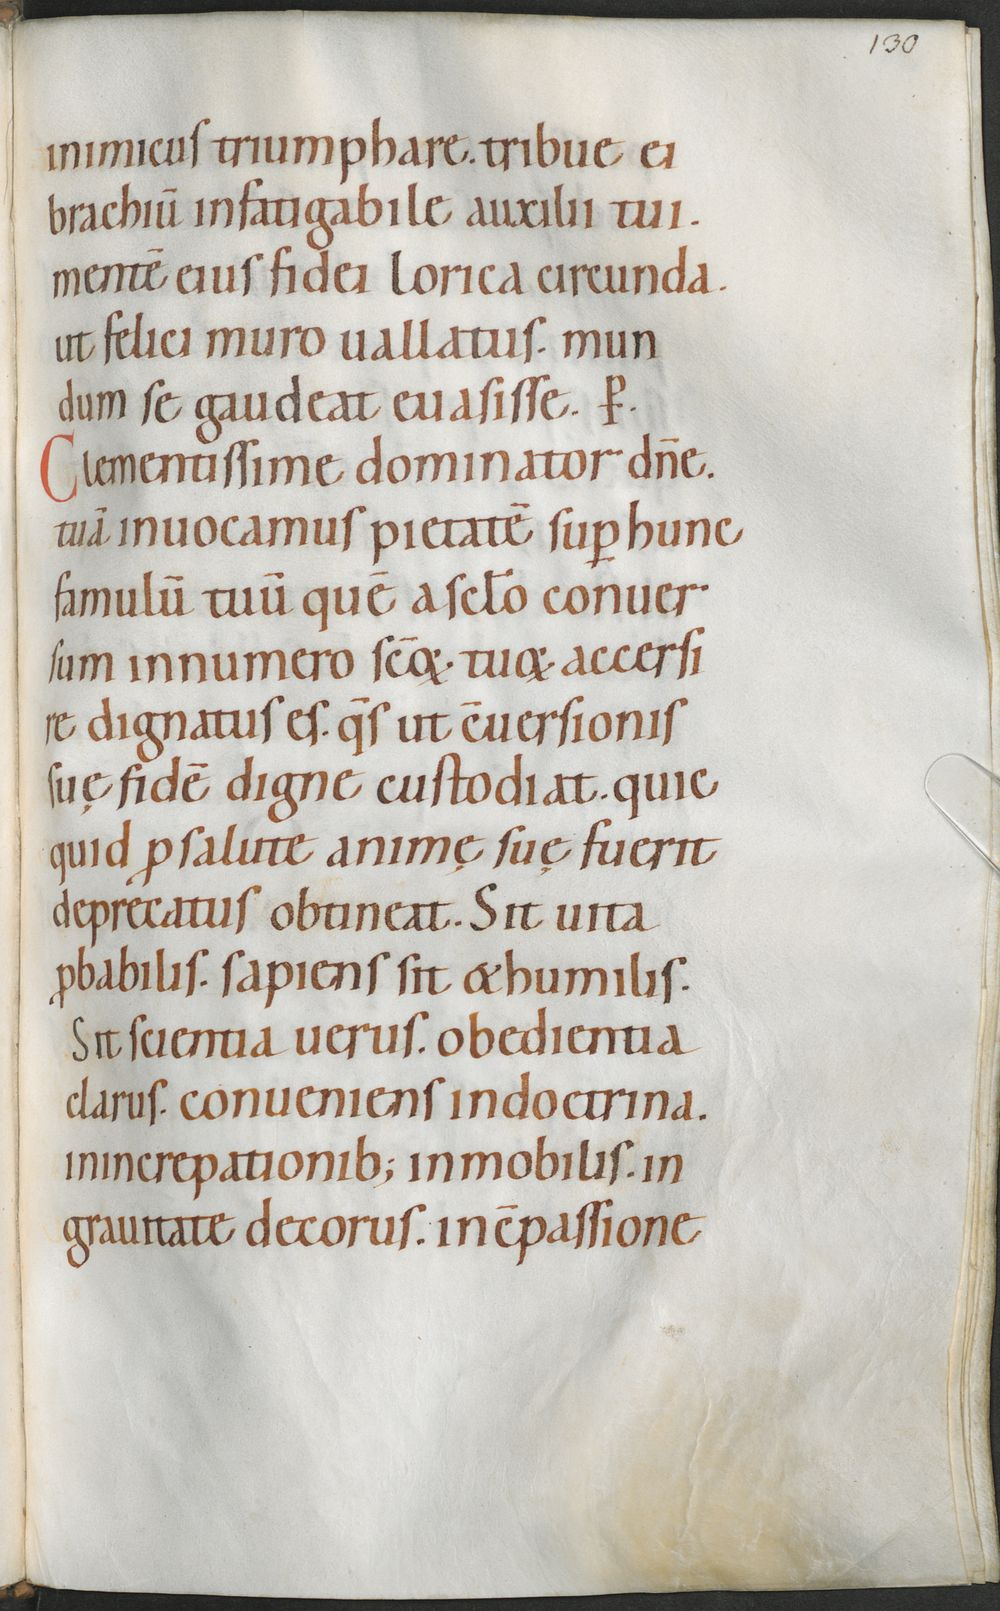 130
inimicus triumphare. tribue ei
brachiū infatigabile auxilii tui.
mentē eius fidei lorica circunda.
ut felici muro uallatus. mun
dum se gaudeat euasisse. P̄.
Clementissime dominator dn̄e.
tuā inuocamus pietatē suꝑ hunc
famulū tuū quē a sclo̅ conuer
sum innumero sc̄ę tuę accersi
re dignatus es. q̄s ut c̄uersionis
suę fidē digne custodiat. quic
quid ꝓ salute animę suę fuerit
deprecatus obtineat. Sit uita
ꝓbabilis. sapiens sit & humilis.
Sit scientia uerus. obedientia
clarus. conueniens indoctrina.
inincrepationib; inmobilis. in
grauitate decorus. in c̄passione